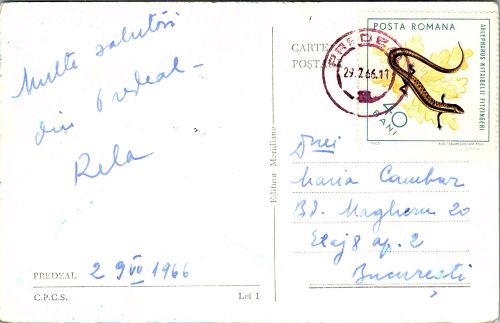 Multe salutări
din Predeal –
Rela
PREDEAL 2 9 VII 1966
C.P.C.S.
Lei 1
Editura Meridiane
CARTE
POȘT
PREDE
29.7.66.11
POSTA ROMANA
ABLEPHARUS KITAIBELII FITZINGERI
40
BANI
Dnei
Maria Cambur
Bd. Magheru 20
Etaj 8 ap. 2
București